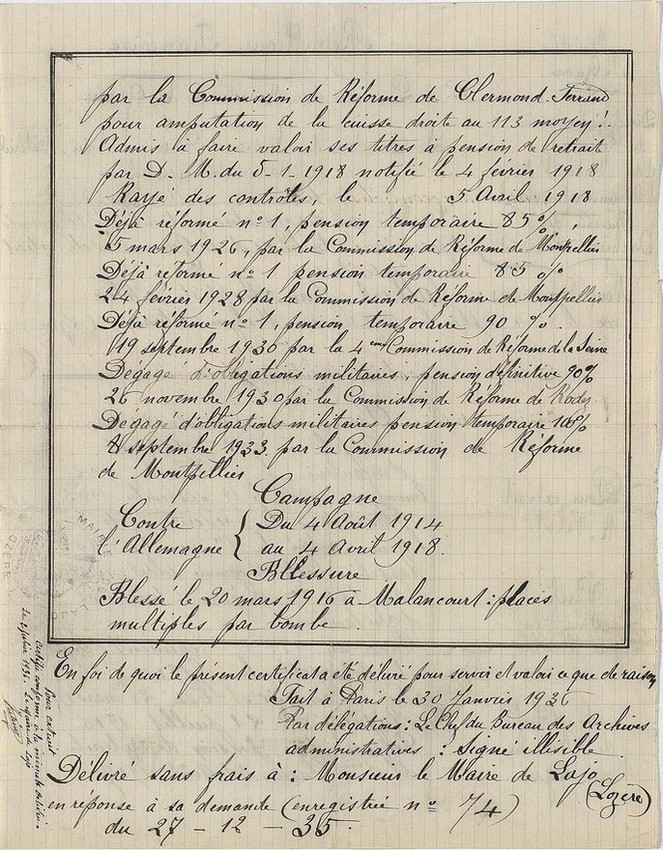 par la Commission de Réforme de Clermond-Ferrand
pour amputation de la cuisse droite au 113 moyen!.
Admis à faire valoir ses titres à pension de retrait
par D. M. du 5-1-1918 notifié le 4 février 1918
Rayé des contrôles, le 5 Avril 1918
Déjà réformé n° 1, pension temporaire 85%,
5 mars 1926, par la Commission de Réforme de Montpellier
Déjà réformé n° 1 pension temporaire 85%
24 février 1928 par la Commission de Réforme de Montpellier
Déjà réformé n° 1, pension temporaire 90 %.
19 septembre 1930 par la 4eme Commission de Réforme de la Seine
Dégagé d'obligations militaires, pension définitive 90%
26 novembre 1930 par la Commission de Réforme de Rodez
Dégagé d'obligations militaires pension temporaire 100%
8 septembre 1933 par la Commission de Réforme
de Montpellier
Campagne
Contre { Du 4 Août 1914
l'Allemagne au 4 Avril 1918.
Bllessure
Blessé le 20 mars 1916 à Malancourt : places
multiples par bombe
En foi de quoi le présent certificat a été délivré pour servir et valoir ce que de raison
Fait à Paris le 30 Janvier 1936
Par délégations : Le Chef du Bureau des Archives
administratives : Signé illisible
Délivré sans frais à : Monsieur le Maire de Lajo
(Lozère)
en réponse à sa demande (enregistrée n° 74)
du 27 - 12 - 35.
Pour extrait
certifié conforme à la minute
Lajo
MAIRIE DE LAJO
LOZERE